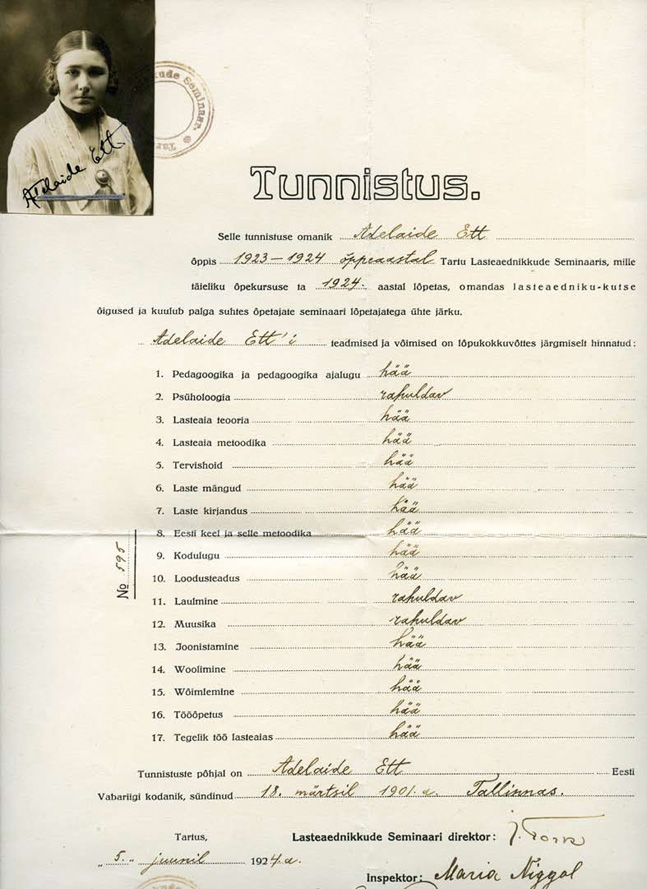 Adelaide Ett
Tunnistus.
Selle tunnistuse omanik Adelaide Ett
õppis 1923–1924 õppeaastal Tartu Lasteaednikkude Seminaris, mille
täieliku õpekursuse ta 1924. aastal lõpetas, omandas lasteaedniku-kutse
õigused ja kuulub palga suhtes õpetajate seminari lõpetajatega ühte järku.
Adelaide Ett'i teadmised ja võimised on lõpukokkuvõttes järgmiselt hinnatud:
1. Pedagoogika ja pedagoogika ajalugu hää
2. Psüholoogia rahuldav
3. Lasteaia teooria hää
4. Lasteaia metoodika hää
5. Tervishoid hää
6. Laste mängud hää
7. Laste kirjandus hää
8. Eesti keel ja selle metoodika hää
9. Kodulugu hää
10. Loodusteadus hää
11. Laulmine rahuldav
12. Muusika rahuldav
13. Joonistamine hää
14. Woolimine hää
15. Wõimlemine hää
16. Tööõpetus hää
17. Tegelik töö lasteaias hää
No 595
Tunnistuste põhjal on Adelaide Ett Eesti
Vabariigi kodanik, sündinud 18. märtsil 1901. a. Tallinnas.
Tartus, Lasteaednikkude Seminaari direktor:
„5.„ juunil 1924.a.
Inspektor: Maria Niggol